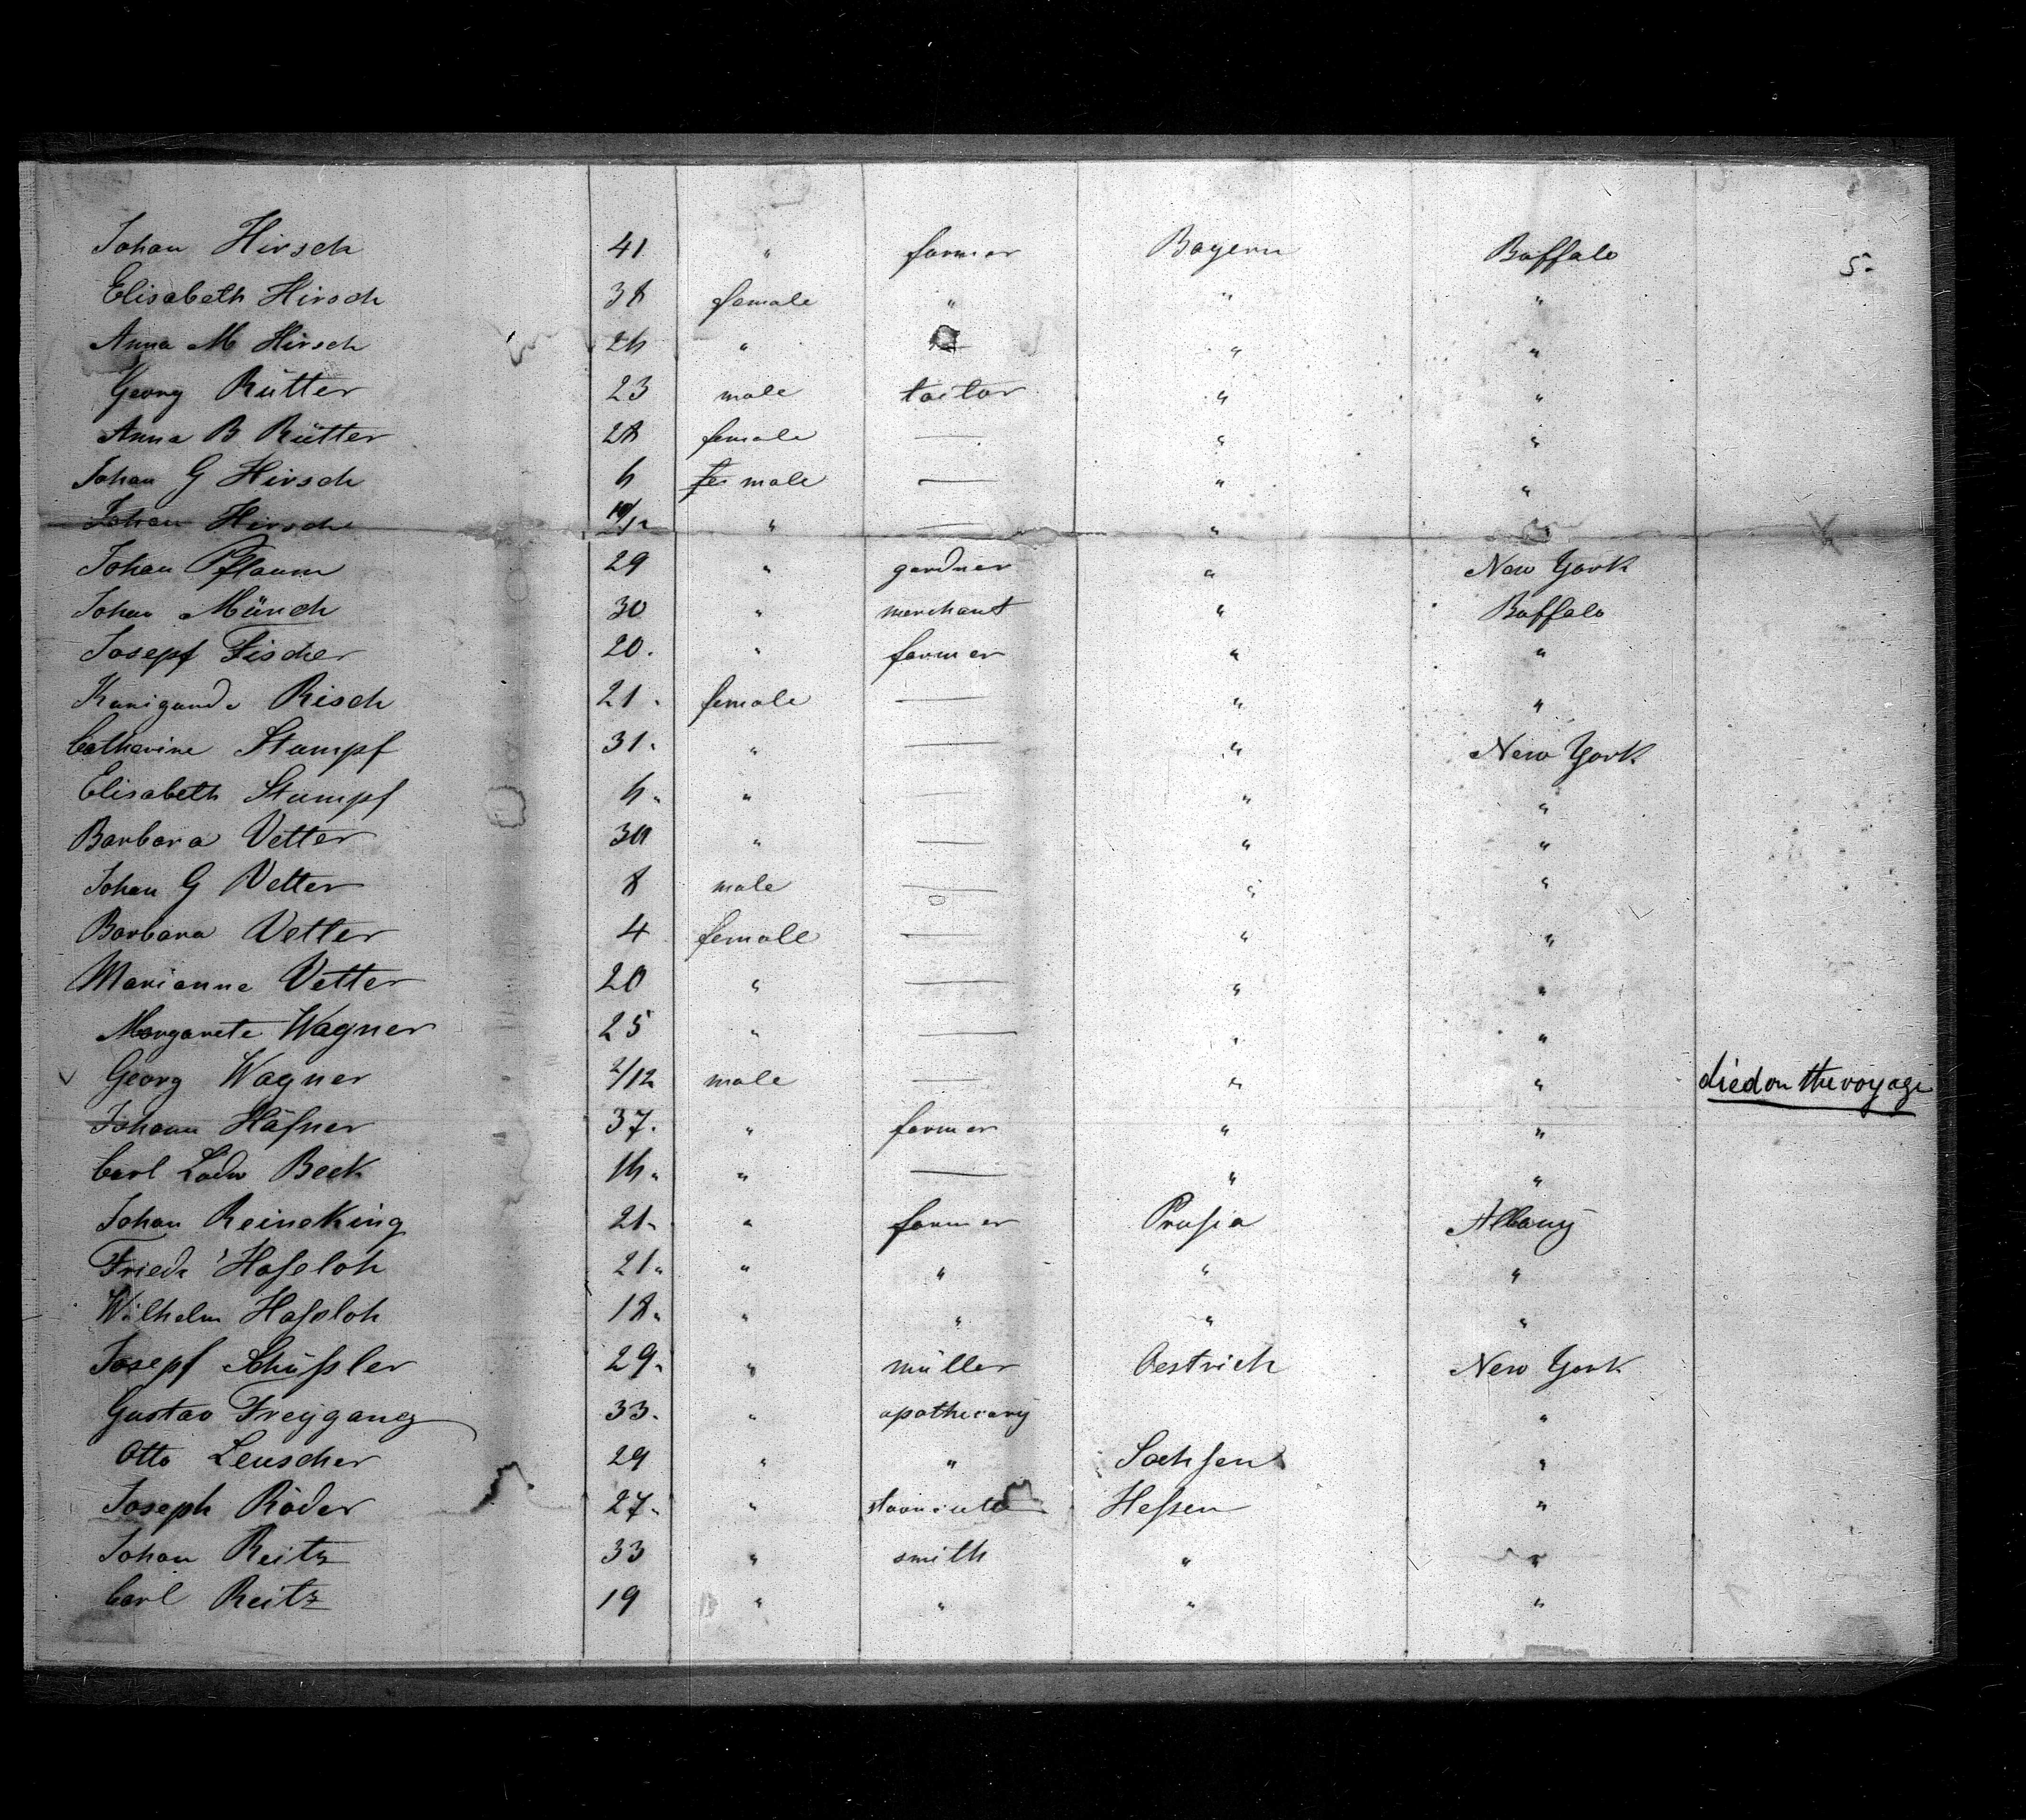 Johan Hirsch 41 " farmer Bayern Buffalo 5.
Elisabeth Hirsch 38 female " " "
Anna M Hirsch 26 " " "
Georg Rütter 23 male tailor " "
Anna B Rütter 28 female — " "
Johan G Hirsch 6 fe male — " "
Johan Hirsch 10/12 " — " "
Johan Pflaum 29 " gardner " New York
Johan Münch 30 " merchant " Buffalo
Josepf Fischer 20. " farmer " "
Kunigunde Risch 21. female — " "
Catharine Stumpf 31. " — " New York
Elisabeth Stumpf 6. " — " "
Barbara Vetter 30 " — " "
Johan G Vetter 8 male — " "
Barbara Vetter 4 female — " "
Marianne Vetter 20 " — " "
Margarete Wagner 25 " — " "
Georg Wagner 2/12 male — " " died on the voyage
Johann Häfner 37. " farmer " "
Carl Ludw Beck 16. " — " "
Johan Reineking 21. " farmer Prusia Albany
Friedr Haseloh 21. " " " "
Wilhelm Haseloh 18. " " " "
Josepf Schüssler 29. " müller Oestrich New York
Gustav Freygang 33. " apothecary "
Otto Leuscher 29 " " Sachsen "
Joseph Röder 27. " Hessen "
Johan Reitz 33 " smith " "
Carl Reitz 19 " " " "